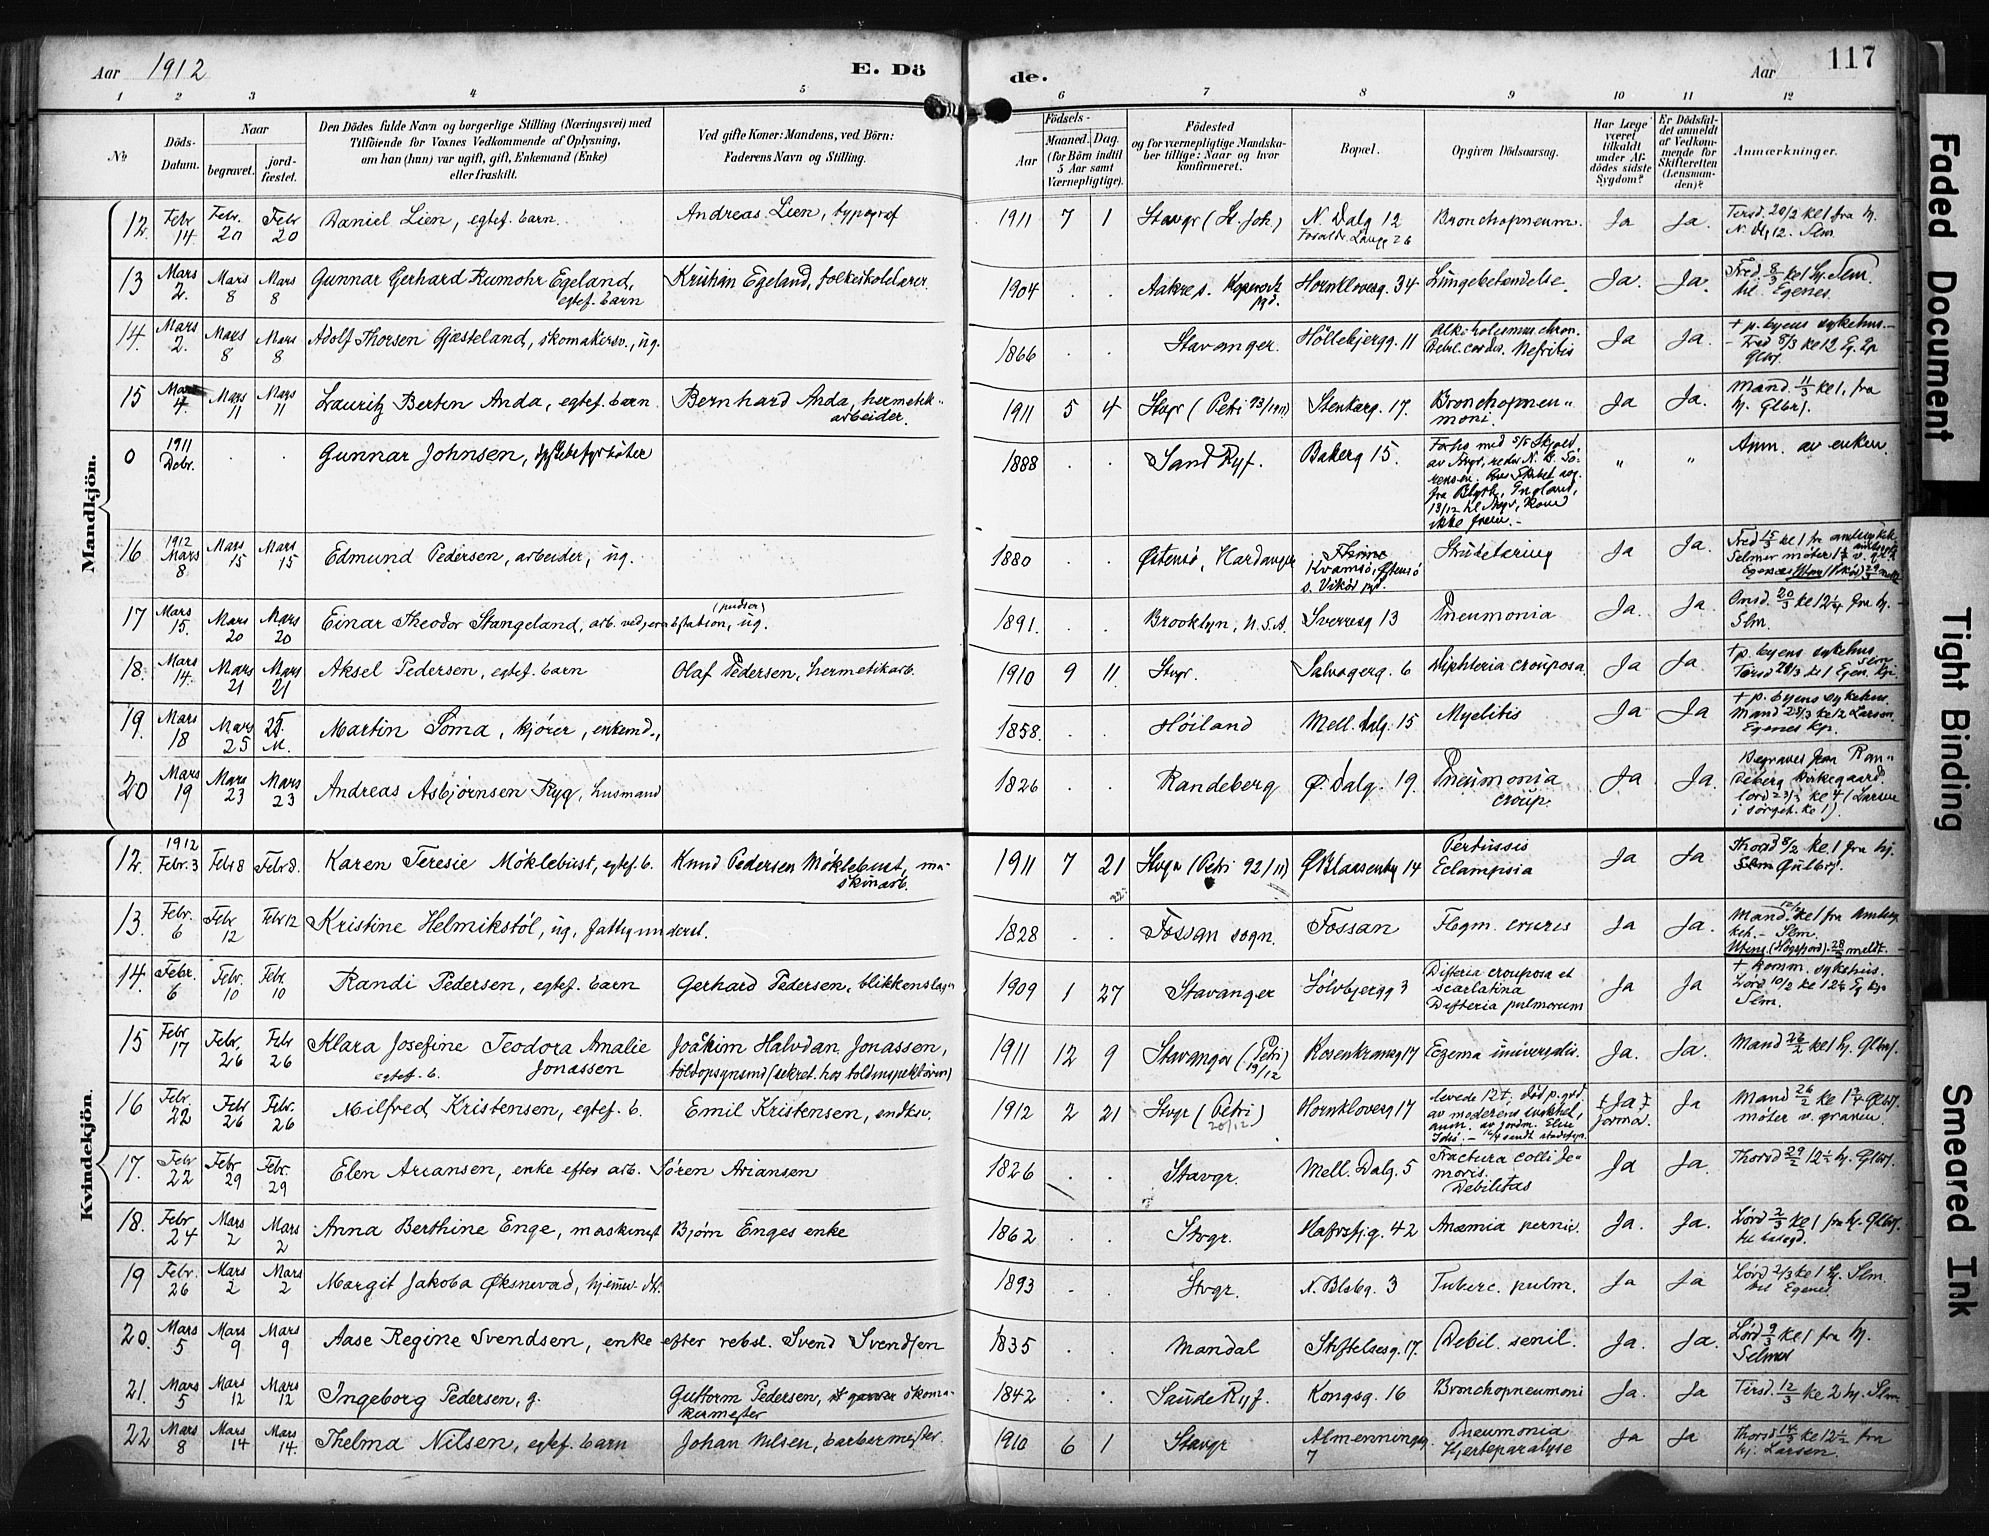 Aar 1912 E. Dö de. Aar 117
1 2 3 4 5 6 7 8 9 10 11 12
No
Döds-Datum.
Naar
begravet.
jord-fæstet.
Den Dödes fulde Navn og borgerlige Stilling (Næringsvei) med
Tilföiende for Voxnes Vedkommende af Oplysning,
om han (hun) var ugift, gift, Enkemand (Enke)
eller fraskilt.
Ved gifte Koner: Mandens, ved Börn:
Faderens Navn og Stilling.
Födsels-
Aar
Maaned. Dag.
(for Börn indtil
5 Aar samt
Værnepligtige).
Födested
og for værnepligtige Mandska-
ber tillige: Naar og hvor
konfirmeret.
Bopæl.
Opgiven Dödsaarsag.
Har Læge
været
tilkaldt
under Af-
dödes sidste
Sygdom?
Er Dödsfal-
det anmeldt
af Vedkom-
mende for
Skifteretten
(Lensman-
den)?
Anmærkninger.
Mandkjön.
12. Febr 14 Febr. 20 Febr 20 Daniel Lien, egtef. barn. Andreas Lien, typograf 1911 7 1 Stavgr (St. Joh.) N. Dalg 12 Bronchopneum. Ja Ja. Tirsd. 20/2 kl 1 fra hj.
N. Dlg 12. Slm
13 Mars 2. Mars 8 Mars 8 Gunnar Gerhard Rumohr Egeland, egtef. barn Kristian Egeland, folkeskolelærer. 1904 . . Aakre s. Kopervik pgd. Hornkloverg. 34 Lungebetændelse. Ja. Ja. Fred. 8/3 kl 1 hj. Slm
til Egenes.
14. Mars 2. Mars 8 Mars 8 Adolf Thorsen Gjæsteland, skomakersv., ug. 1866 . . Stavanger. Hollebjergg. 11 Alkoholismus chron.
Debil. cordis. Nefritis Ja Ja. + p. byens sykehus.
Fred 8/3 kl 12 Eg. kp
Glbrj.
15 Mars 4 Mars 11 Mars 11 Lauritz Berten Anda, egtef. barn Bernhard Anda, hermetik-
arbeider. 1911 5 4 Stvgr (Petri 73/1911) Stenkarg. 17. Bronchopneu-
moni. Ja Ja. Mand. 11/3 kl 1, fra
hj. Glbrj.
0 1911 Debr. . . Gunnar Johnsen, 1888 . . Sand Ryf. Bakerg 15. Forlis med S/S Skjold,
av Stvgr, reder N. B. Sö-
rensen.
fra Blyth, England,
13/12 til Stvgr, kom
ikke frem. - " " Anm. av enken.
16 1912 Mars 8 Mars 15 Mars 15 Edmund Pedersen, arbeider, ug. 1880 . . Østensø, Hardanger Kvamsø, Østensø
s. Vikør pgd. Ja Ja. Fred 15/3 kl 1 fra
Selmer møter
Egenes
17 Mars 15. Mars 20 Mars 20 Einar Theodor Stangeland, arb. ved jernbstation, (pudser) ug. 1891. . . Brooklyn, U.S.A. Sverresg 13 Pneumonia Ja. Ja. Onsd. 20/3 kl 12¼ fra hj.
Slm.
18. Mars 14. Mars 21 Mars 21 Aksel Pedersen, egtef. barn Olaf Pedersen, hermetikarb. 1910 9 11. Stvgr. Salvagerg. 6 Diphteria crouposa. Ja Ja. + p. byens sykehus.
Slm
19. Mars 18 Mars 25 25 M. Martin Soma, kjører, enkemd., 1858. . . Høiland Mell. Dalg. 15 Myelitis Ja Ja + p. byens sykehus.
Mand 25/3 kl 12 Larsen
Egenes kp.
20 Mars 19 Mars 23 Mars 23 Andreas Asbjørnsen Ryg, husmand 1826 . . Randeberg Ø. Dalg. 19. Pneumonia
croup. Ja. Ja. Begraves paa Ran-
deberg kirkegaard.
lørd 23/3 kl 4 (Larsen
i sørgeh. kl 1).
Kvindekjön.
12. 1912 Febr. 3 Febr 8 Febr 8. Karen Teresie Møklebust, egtef. b. Knud Pedersen Møklebust, ma-
skinarb. 1911 7 21 Stvgr (Petri 92/11) Ø Blaasenbg 14 Pertussis
Eclampsia Ja Ja Thorsd 8/2 kl. 1 fra hj.
Gulbrj.
13. Febr. 6 Febr. 12 Febr 12 Kristine Helmikstøl, ug, fattigunderst. 1828 . . Fossan sogn. Fossan Flegm. cruris Ja Ja. Mand. 12/2 kl 1 fra amtssy
keh. - Slm.
Utens. (Høgsfjord). 28/3 meldt.
14. Febr. 6 Febr. 10 Febr. 10 Randi Pedersen, egtef. barn Gerhard Pedersen, blikkenslag. 1909 1 27 Stavanger Sölvbjergg 3 Difteria crouposa et
scarlatina
Difteria pulmorum Ja Ja + komm. sykehus.
Lörd 10/2 kl 12¼ Eg kp.
Slm.
15 Febr 17 Febr. 26 Febr 26 Klara Josefine Teodora Amalie
egtef. b. Jonassen Joakim Halvdan Jonassen,
toldopsynsmd (sekret. hos toldinspektören) 1911 12 9 Stavanger (Petri) 19/12 Rosenkransg 17 Eczema universalis. Ja. Ja. Mand 26/2 kl 1 hj. Glbrj.
16 Febr. 22 Febr 26 Febr. 26 Milfred Kristensen, egtef. b. Emil Kristensen, snedksv. 1912 2 21 Stvgr (Petri) 20/12 Hornkloverg 17 levede 12 t, död p. grd.
av moderens svakhet,
anm. av jordm. Elin Ja
jormd. Ja Mand 26/2 kl 1¾ Glbrj.
møter v. graven
17. Febr 22 Febr. 29 Febr. 29 Elen Ariansen, enke efter arb. Sören Ariansen 1826 . . Stavgr. Mell. Dalg. 5 Fractura colli fe-
moris.
Debilitas Ja Ja. Thorsd 29/2 12½ hj. Glbrj.
18. Febr. 24 Mars 2 Mars 2 Anna Berthine Enge, maskinist Bjørn Enges enke 1862 . . Stvgr. Hafrsfj.g. 42 Anæmia pernic. Ja. Ja. Lørd 2/3 kl 1 fra hj. Glbrj.
19 Febr. 26 Mars 2 Mars 2 Margit Jakoba Øksnevad, hjemmv. dtr. 1893 . . Stvgr. N. Blsbg. 3 Tuberc. pulm. Ja Ja Lørd 2/3 kl 1 hj. Slm.
til Egenes
20. Mars 5 Mars 9 Mars 9 Aase Regine Svendsen, enke efter rebsl. Svend Svendsen 1835 . . Mandal Stiftelsesg. 17. Debil. senil. Ja. Ja. Lørd 9/3 kl 1 fra hj.
Selmer
21. Mars 5 Mars 12 Mars 12 Ingeborg Pedersen, g. Guttorm Pedersen, skoma-
kermester 1842 . . Saude Ryf. Kongsg. 16 Bronchopneumoni Ja. Ja Tirsd. 12/3 kl 2 hj. Slm.
22 Mars 8 Mars 14 Mars 14. Thelma Nilsen, egtef. barn Johan Nilsen, barbermester. 1910 6 1 Stavgr Almenningsg.
7 Pneumonia
Hjerteparalyse Ja Ja Thorsd 14/3 kl 12½ fra
hj. Larsen.
Faded Document
Tight Binding
Smeared Ink